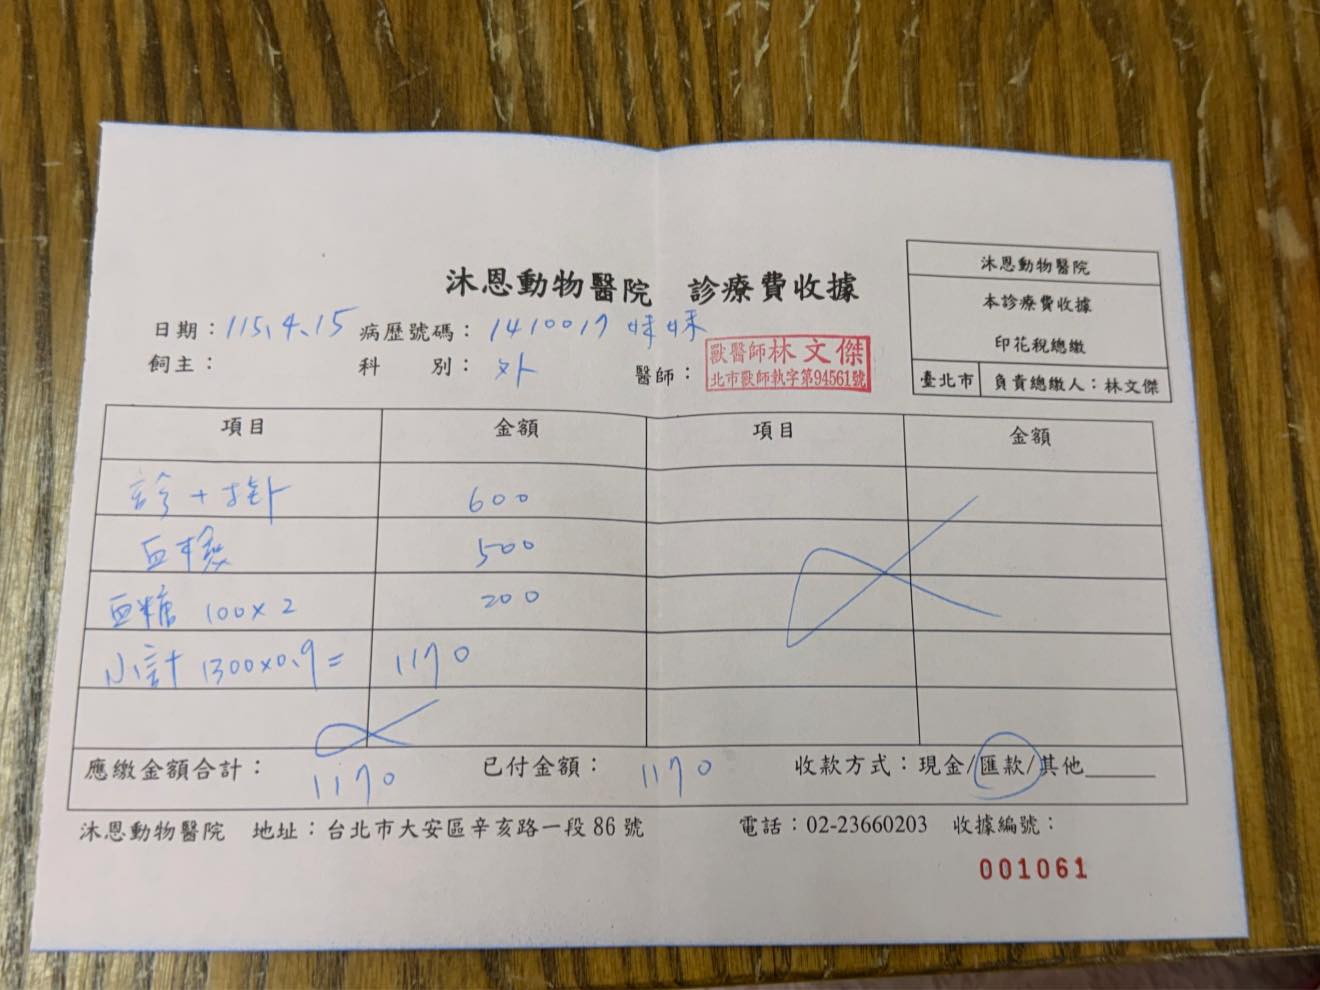 沐恩動物醫院 診療費收據
沐恩動物醫院
本診療費收據
印花稅總繳
臺北市 負責總繳人：林文傑
日期：115.4.15 病歷號碼：1410017 妹妹
飼主： 科 別：外 醫師：
獸醫師林文傑
北市獸師執字第94561號
項目 金額 項目 金額
診+針 600
血檢 500
血糖 100x2 200
小計 1300x0.9= 1170
應繳金額合計：1170 已付金額：1170 收款方式：現金/匯款/其他______
沐恩動物醫院 地址：台北市大安區辛亥路一段86號 電話：02-23660203 收據編號：
001061